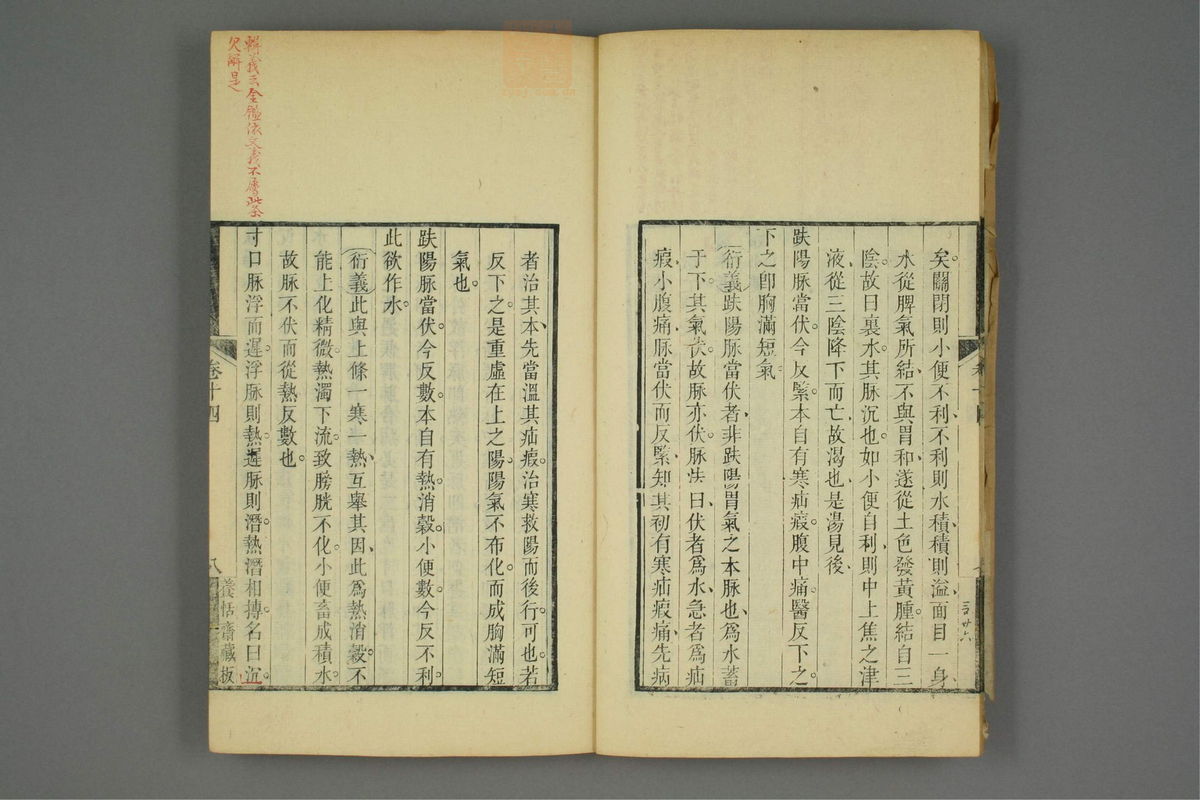 矣關閉則小便不利不利則水積積則溢面目一身
水從脾氣所結不與胃和遂從土色發黃腫結自三
陰故曰裏水其脉沉也如小便自利則中上焦之津
液從三陰降下而亡故渴也是湯見後
趺陽脉當伏今反緊本自有寒疝瘕腹中痛醫反下之
下之卽胸滿短氣
衍義趺陽脉當伏者非趺陽胃氣之本脉也爲水蓄
于下其氣伏故脉亦伏脉法曰伏者爲水急者爲疝
瘕小腹痛脉當伏而反緊知其初有寒疝瘕痛先病
者治其本先當溫其疝瘕治寒救陽而後行可也若
反下之是重虛在上之陽陽氣不布化而成胸滿短
氣也
趺陽脉當伏今反數本自有熱消穀小便數今反不利
此欲作水
衍義此與上條一寒一熱互舉其因此爲熱消穀不
能上化精微熱濁下流致膀胱不化小便畜成積水
故脉不伏而從熱反數也
寸口脉浮而遲浮脉則熱遲脉則潛熱潛相搏名曰沉
卷十四
八
養恬齋藏板
輯義云金鑑依文義不屬此条
欠解是